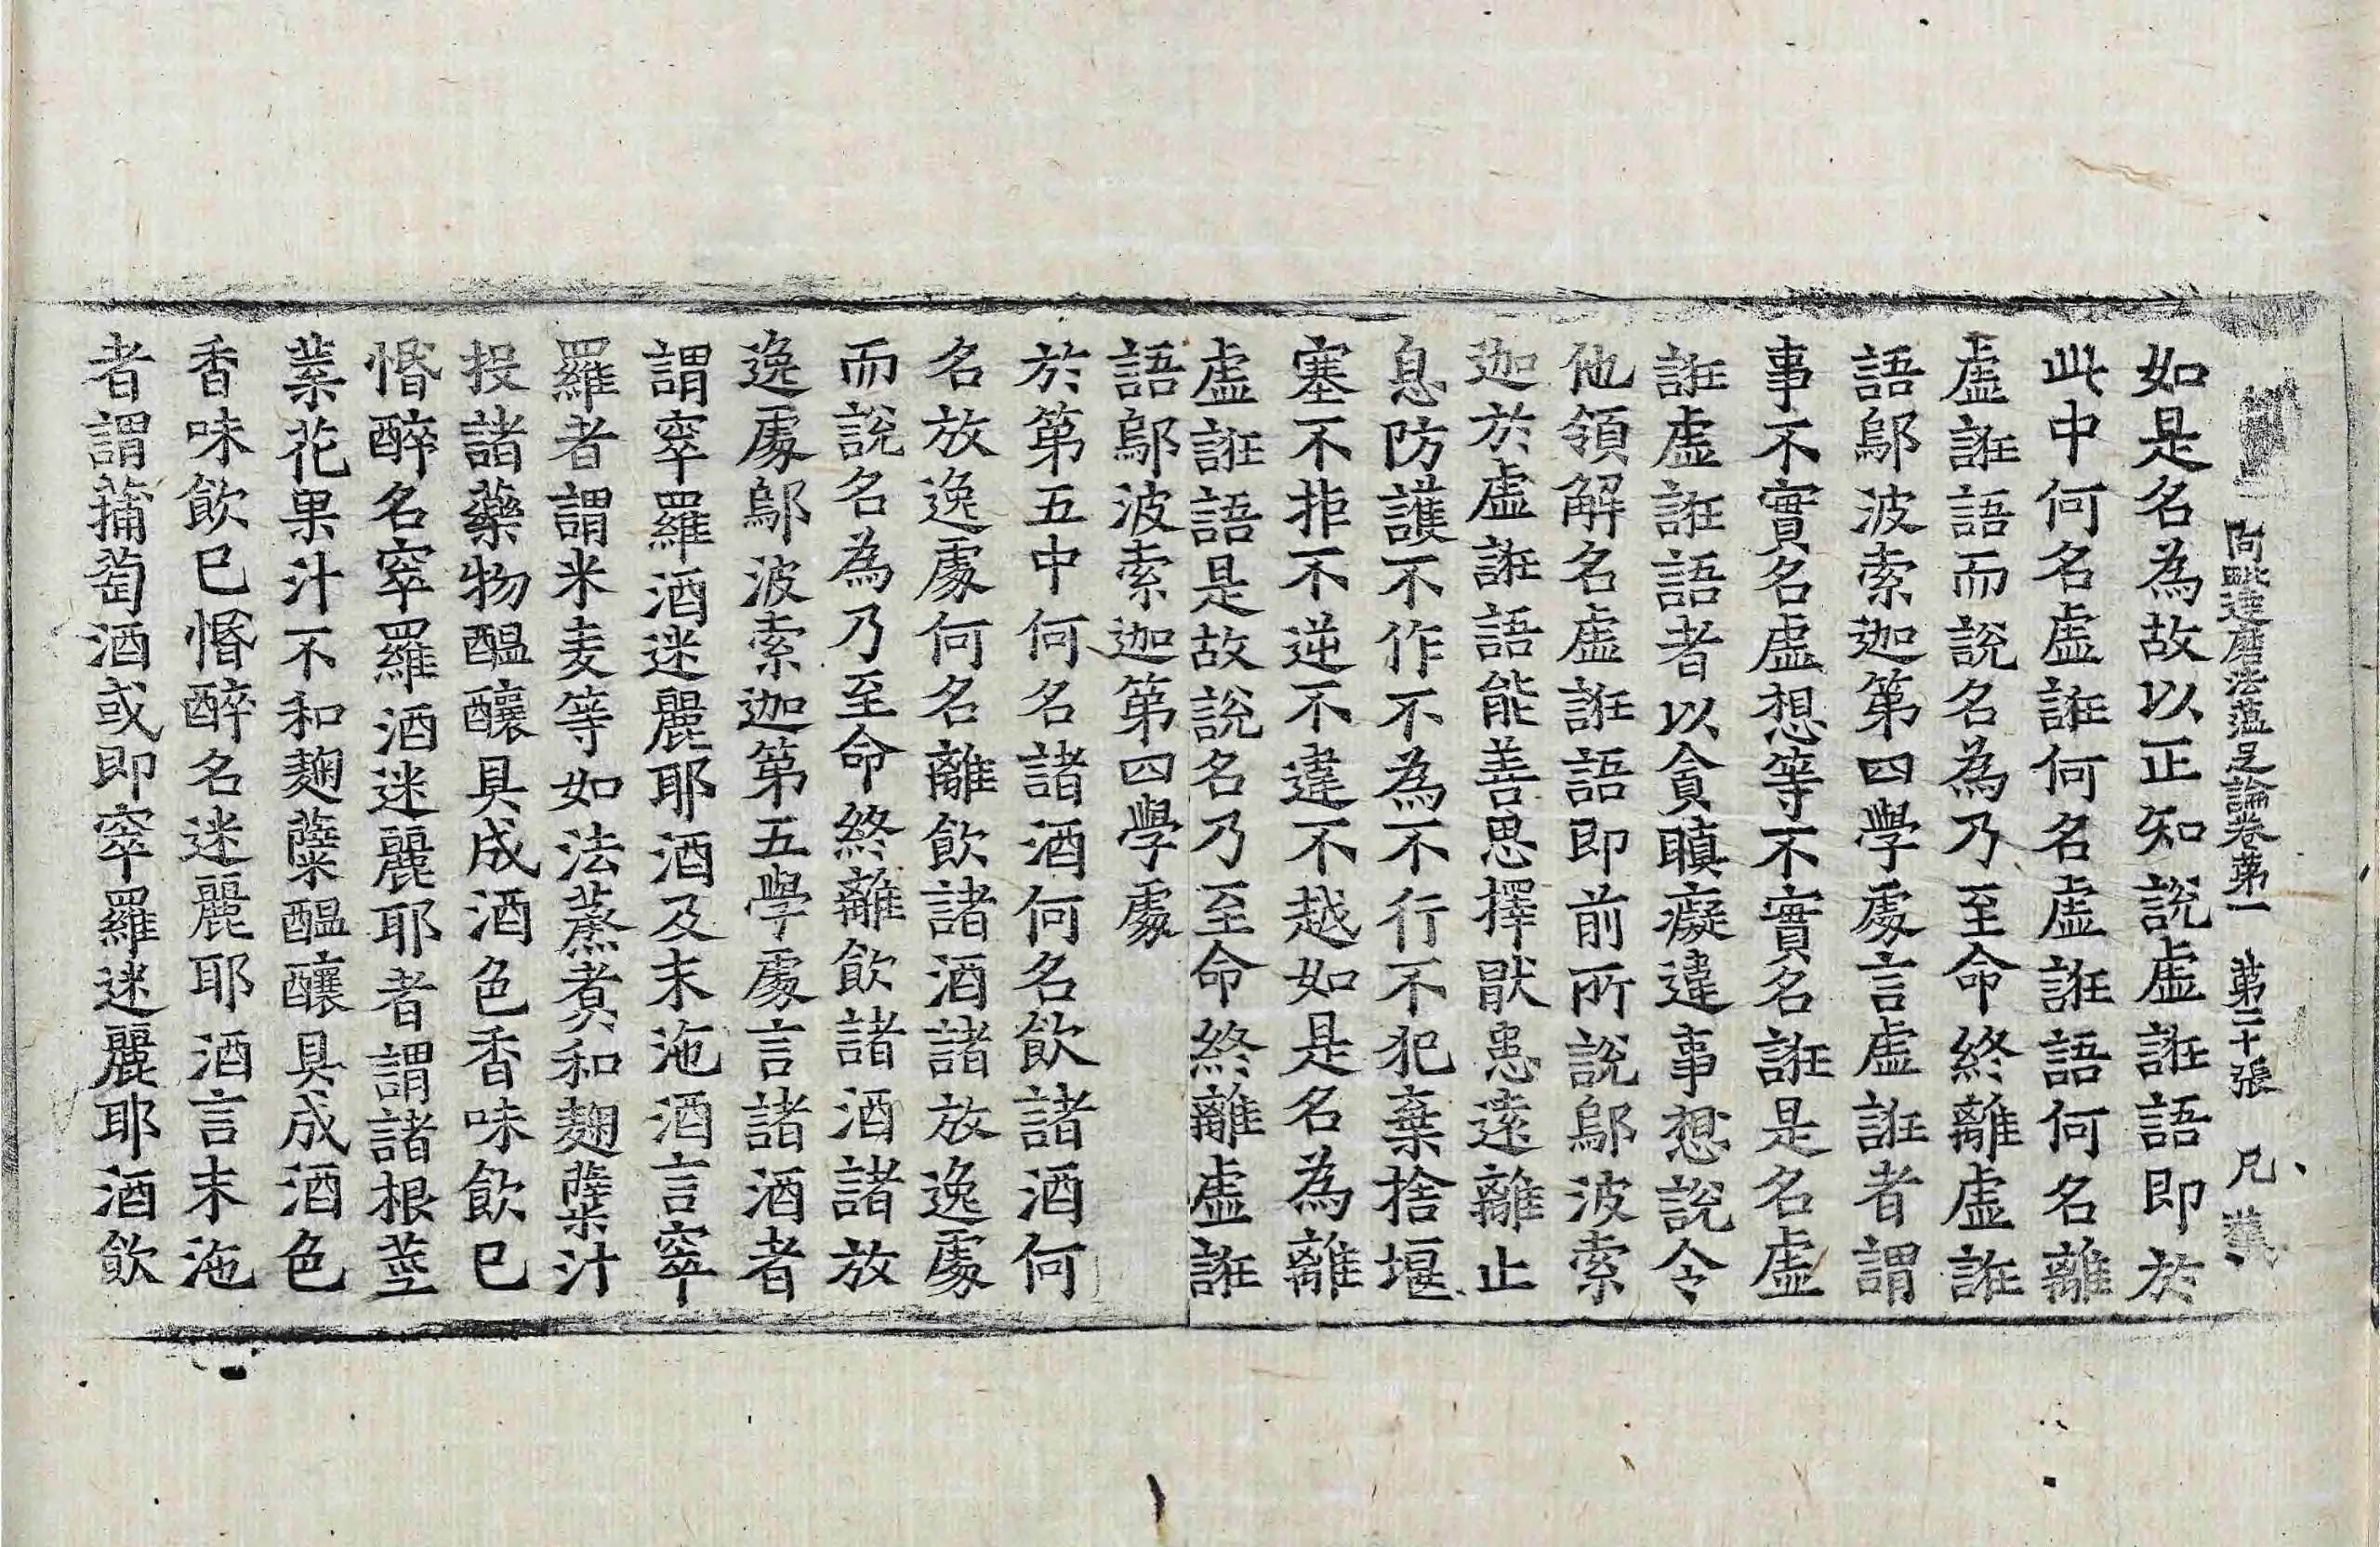 阿毗達磨法蘊足論卷第一　第二十張　凡
如是名為故以正知說虛誑語即於
此中何名虛誑何名虛誑語何名離
虛誑語而說名為乃至命終離虛誑
語鄔波索迦第四學處言虛誑者謂
事不實名虛想等不實名誑是名虛
誑虛誑語者以貪瞋癡違事想說令
他領解名虛誑語即前所說鄔波索
迦於虛誑語能善思擇猒患遠離止
息防護不作不為不行不犯棄捨堰
塞不拒不逆不違不越如是名為離
虛誑語是故說名乃至命終離虛誑
語鄔波索迦第四學處
於第五中何名諸酒何名飲諸酒何
名放逸處何名離飲諸酒諸放逸處
而說名為乃至命終離飲諸酒諸放
逸處鄔波索迦第五學處言諸酒者
謂窣羅酒迷麗耶酒及末沲酒言窣
羅者謂米麦等如法蒸煑和麹櫱汁
投諸藥物醞釀具成酒色香味飲已
惛醉名窣羅酒迷麗耶者謂諸根莖
葉花果汁不和麹櫱醞釀具成酒色
香味飲已惛醉名迷麗耶酒言末沲
者謂蒱萄酒或即窣羅迷麗耶酒飲